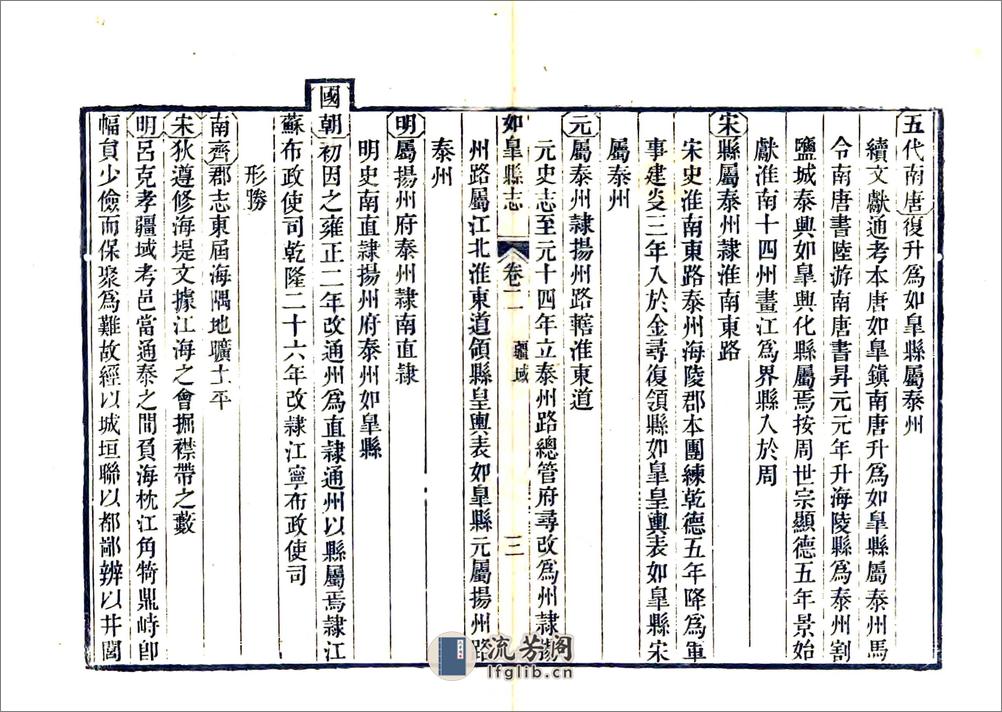 五代南唐復升爲如臯縣屬泰州
續文獻通考本唐如臯鎮南唐升爲如臯縣屬泰州馬
令南唐書陸游南唐書昇元元年升海陵縣爲泰州割
鹽城泰興如臯興化縣屬焉按周世宗顯德五年景始
獻淮南十四州畫江爲界縣入於周
宋縣屬泰州隸淮南東路
宋史淮南東路泰州海陵郡本團練乾德五年降爲軍
事建炎三年入於金尋復領縣如臯皇輿表如臯縣宋
屬泰州
元屬泰州隸揚州路轄淮東道
元史志至元十四年立泰州路總管府尋改爲州隸揚
如臯縣志 卷二 疆域 三
州路屬江北淮東道領縣皇輿表如臯縣元屬揚州路
泰州
明屬揚州府泰州隸南直隸
明史南直隸揚州府泰州如臯縣
國朝初因之雍正二年改通州爲直隸通州以縣屬焉隸江
蘇布政使司乾隆二十六年改隸江寧布政使司
形勝
南齊郡志東屆海隅地曠土平
宋狄遵修海堤文據江海之會掘襟帶之藪
明呂克孝疆域考邑當通泰之間負海枕江角犄鼎峙卽
幅員少儉而保聚爲難故經以城垣聯以都鄙辨以井閭
流芳阁
lfglib.cn